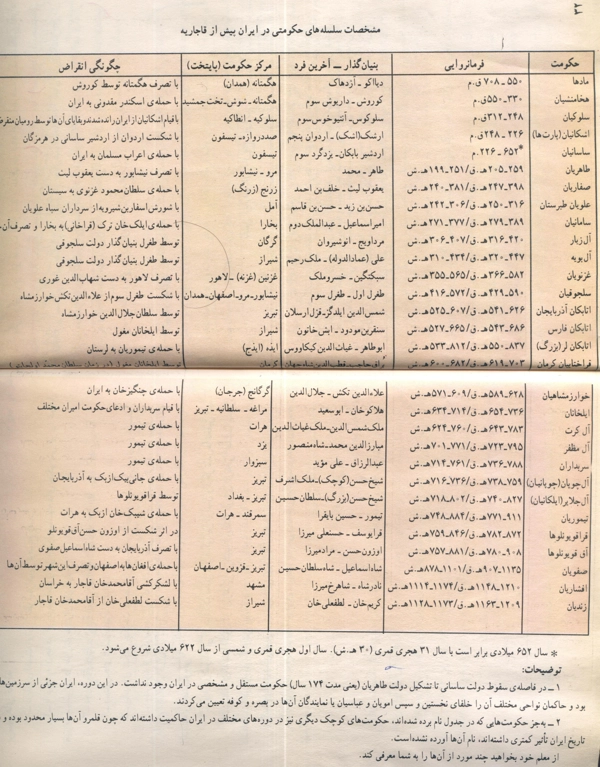 ۳۲
مشخصات سلسله‌های حکومتی در ایران پیش از قاجاریه
حکومت | فرمانروایی | بنیان‌گذار ــ آخرین فرد | مرکز حکومت (پایتخت) | چگونگی انقراض
مادها | ۵۵۰ ـ ۷۰۸ ق.م | دیااکو ـ آژدهاک | هگمتانه (همدان) | با تصرف هگمتانه توسط کوروش
هخامنشیان | ۳۳۰ ـ ۵۵۰ق.م | کوروش ـ داریوش سوم | هگمتانه ـ شوش ـ تخت‌جمشید | با حمله‌ی اسکندر مقدونی به ایران
سلوکیان | ۲۴۸ ـ ۳۱۲ق.م | سلوکوس ـ آنتیوخوس سوم | سلوکیه ـ انطاکیه | با قیام اشکانیان از ایران رانده شدند و بقایای آن‌ها توسط رومیان
اشکانیان (پارت‌ها) | ۲۲۶ ـ ۲۴۸ق.م | ارشک(اشک) ـ اردوان پنجم | صددروازه ـ تیسفون | با شکست اردوان از اردشیر ساسانی در هرمزگان
ساسانیان | *۶۵۲ ـ ۲۲۶ م. | اردشیر بابکان ـ یزدگرد سوم | تیسفون | با حمله‌ی اعراب مسلمان به ایران
طاهریان | ۲۵۹ ـ ۲۰۵هـ.ق/۲۵۱ ـ ۱۹۹هـ.ش | طاهر ـ محمد | مرو ـ نیشابور | با تصرف نیشابور به دست یعقوب لیث
صفاریان | ۳۹۸ ـ ۲۴۷هـ.ق/۳۸۱ ـ ۲۴۰هـ.ش | یعقوب لیث ـ خلف‌بن احمد | زرنج (زرنگ) | با حمله‌ی سلطان محمود غزنوی به سیستان
علویان طبرستان | ۳۱۶ ـ ۲۵۰هـ.ق/۳۰۶ ـ ۲۴۲هـ.ش | حسن‌بن زید ـ حسن‌بن قاسم | آمل | با شورش اسفاربن شیرویه از سرداران سپاه علویان
سامانیان | ۳۸۹ ـ ۲۷۹هـ.ق/۳۷۷ ـ ۲۷۱هـ.ش | امیراسماعیل ـ عبدالملک دوم | بخارا | با حمله‌ی ایلک‌خان ترک (قراخانی) به بخارا و تصرف آن
آل‌زیار | ۴۲۰ ـ ۳۱۶هـ.ق/۴۰۷ ـ ۳۰۶هـ.ش | مرداویج ـ انوشیروان | گرگان | توسط طغرل بنیان‌گذار دولت سلجوقی
آل‌بویه | ۴۴۷ ـ ۳۲۰هـ.ق/۴۳۴ ـ ۳۱۰هـ.ش | علی (عمادالدوله) ـ ملک‌رحیم | شیراز | توسط طغرل بنیان‌گذار دولت سلجوقی
غزنویان | ۵۸۲ ـ ۳۶۶هـ.ق/۵۶۵ ـ ۳۵۵هـ.ش | سبکتگین ـ خسروملک | غزنین (غزنه) ـ لاهور | با تصرف لاهور به دست شهاب‌الدین غوری
سلجوقیان | ۵۹۰ ـ ۴۲۹هـ.ق/۵۷۲ ـ ۴۱۶هـ.ش | طغرل اول ـ طغرل سوم | نیشابور ـ مرو ـ اصفهان ـ همدان | با شکست طغرل سوم از علاءالدین تکش خوارزمشاه
اتابکان آذربایجان | ۶۲۶ ـ ۵۴۱هـ.ق/۶۰۷ ـ ۵۲۵هـ.ش | شمس‌الدین ایلدگز ـ قزل ارسلان | تبریز | توسط سلطان جلال‌الدین خوارزمشاه
اتابکان فارس | ۶۸۶ ـ ۵۴۳هـ.ق/۶۶۵ ـ ۵۲۷هـ.ش | سنقربن مودود ـ ابش‌خاتون | شیراز | توسط ایلخانان مغول
اتابکان لر(بزرگ) | ۸۳۷ ـ ۵۵۰هـ.ق/۸۱۲ ـ ۵۳۳هـ.ش | ابوطاهر ـ غیاث‌الدین کیکاووس | ایذه (ایذج) | با حمله‌ی تیموریان به لرستان
قراختاییان کرمان | ۷۰۳ ـ ۶۱۹هـ.ق/۶۸۲ ـ ۶۰۰هـ.ش | براق حاجب ـ قطب‌الدین شاه‌جهان | کرمان | توسط ایلخانان مغول
خوارزمشاهیان | ۶۲۸ ـ ۵۸۹هـ.ق/۶۰۹ ـ ۵۷۱هـ.ش | علاءالدین تکش ـ جلال‌الدین | گرگانج (جرجان) | با حمله‌ی چنگیزخان به ایران
ایلخانان | ۷۳۶ ـ ۶۵۴هـ.ق/۷۱۴ ـ ۶۳۴هـ.ش | هلاکوخان ـ ابوسعید | مراغه ـ سلطانیه ـ تبریز | با قیام سربداران و ادعای حکومت امیران مختلف
آل کرت | ۷۸۳ ـ ۶۴۳هـ.ق/۷۶۰ ـ ۶۲۴هـ.ش | ملک شمس‌الدین ـ ملک غیاث‌الدین | هرات | با حمله‌ی تیمور
آل مظفر | ۷۹۵ ـ ۷۲۳هـ.ق/۷۷۱ ـ ۷۰۱هـ.ش | مبارزالدین محمد ـ شاه‌منصور | یزد | با حمله‌ی تیمور
سربداران | ۷۸۸ ـ ۷۳۶هـ.ق/۷۶۱ ـ ۷۱۴هـ.ش | عبدالرزاق ـ علی مؤید | سبزوار | با حمله‌ی تیمور
آل‌چوپان (چوپانیان) | ۷۵۹ ـ ۷۳۸هـ.ق/۷۳۶ ـ ۷۱۶هـ.ش | شیخ حسن(کوچک) ـ ملک اشرف | تبریز | با حمله‌ی جانی‌بیک ازبک به آذربایجان
آل‌جلایر (ایلکانیان) | ۸۲۷ ـ ۷۴۰هـ.ق/۸۰۲ ـ ۷۱۸هـ.ش | شیخ حسن(بزرگ) ـ سلطان حسین | تبریز ـ بغداد | توسط قراقویونلوها
تیموریان | ۹۱۱ ـ ۷۷۱هـ.ق/۸۸۴ ـ ۷۴۸هـ.ش | تیمور ـ حسین بایقرا | سمرقند ـ هرات | با حمله‌ی شیبک‌خان ازبک به هرات
قراقویونلوها | ۸۷۲ ـ ۷۸۲هـ.ق/۸۴۶ ـ ۷۵۹هـ.ش | قرایوسف ـ حسنعلی میرزا | تبریز | در اثر شکست از اوزون حسن آق‌قویونلو
آق قویونلوها | ۹۰۸ ـ ۷۸۰هـ.ق/۸۸۱ ـ ۷۵۷هـ.ش | اوزون‌حسن ـ مرادمیرزا | تبریز | با تصرف آذربایجان به دست شاه‌اسماعیل صفوی
صفویان | ۱۱۳۵ ـ ۹۰۷هـ.ق/۱۱۰۱ ـ ۸۷۸هـ.ش | شاه‌اسماعیل ـ شاه سلطان‌حسین | تبریز ـ قزوین ـ اصفهان | با حمله‌ی افغان‌ها به اصفهان و تصرف این شهر توسط آن‌ها
افشاریان | ۱۲۱۰ ـ ۱۱۴۸هـ.ق/۱۱۷۴ ـ ۱۱۱۴هـ.ش | نادرشاه ـ شاهرخ‌میرزا | مشهد | با لشکرکشی آقامحمدخان قاجار به خراسان
زندیان | ۱۲۰۹ ـ ۱۱۶۳هـ.ق/۱۱۷۳ ـ ۱۱۲۸هـ.ش | کریم‌خان ـ لطفعلی‌خان | شیراز | با شکست لطفعلی‌خان از آقامحمدخان قاجار
* سال ۶۵۲ میلادی برابر است با سال ۳۱ هجری قمری (۳۰ هـ.ش). سال اول هجری قمری و شمسی از سال ۶۲۲ میلادی شروع می‌شود.
توضیحات:
۱ ــ در فاصله‌ی سقوط دولت ساسانی تا تشکیل دولت طاهریان (یعنی مدت ۱۷۴ سال) حکومت مستقل و مشخصی در ایران وجود نداشت. در این دوره، ایران جزئی از سرزمین‌ها
بود و حاکمان نواحی مختلف آن را خلفای نخستین و سپس امویان و عباسیان یا نمایندگان آن‌ها در بصره و کوفه تعیین می‌کردند.
۲ ــ به‌جز حکومت‌هایی که در جدول نام برده شده‌اند، حکومت‌های کوچک دیگری نیز در دوره‌های مختلف در ایران حاکمیت داشته‌اند که چون قلمرو آن‌ها بسیار محدود بوده و
تاریخ ایران تأثیر کمتری داشته‌اند، نام آن‌ها آورده نشده‌است.
از معلم خود بخواهید چند مورد از آن‌ها را به شما معرفی کند.